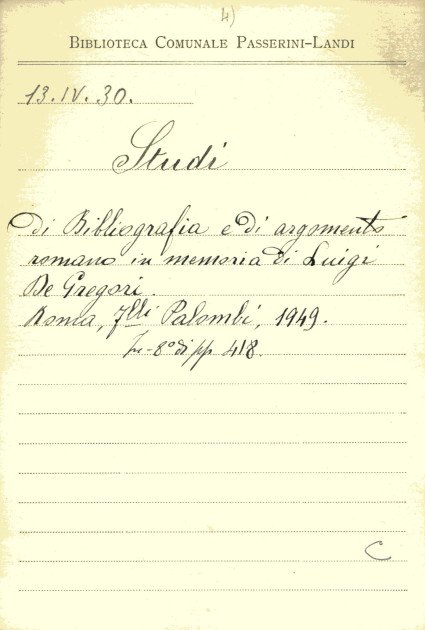 4)
BIBLIOTECA COMUNALE PASSERINI-LANDI
13.IV.30.
Studi
di Bibliografia e di argomento
romano in memoria di Luigi
De Gregori.
Roma, Flli Palombi, 1949.
In-8° di pp 418.
C